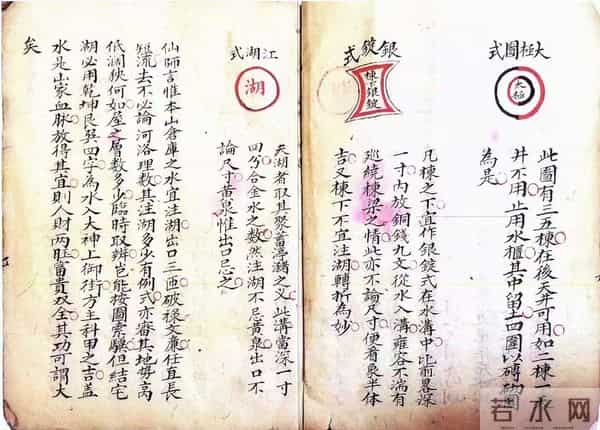 太極圖式
太極
此圖有三五棟在後天井可用如二棟一
井不用止用水櫃其中留土四圍以磚砌圓
為是
銀錠式
棟下銀錠
凡棟之下宜作銀錠式在水溝中比前畧深
一寸內放銅錢九文從水入溝雍谷不湍有
巡繞棟梁之情此亦不論尺寸便看泉半体
吉又棟下不宜注湖轉折為妙
江湖式
湖
夫湖者取其聚蓄亭瀦之义此溝當深一寸
四分合金水之数然注湖不忌黃泉出口不
論尺寸黃泉惟出口忌之
仙師言惟本山倉庫之水宜注湖出口三匝破祿文廉任直長
短流去不必論河洛理數其注湖多少有例式亦審其地勢高
低濶狹何如屋之層數多少臨時取辨豈能按圖索驥但結宅
湖必用乾坤艮巽四字為水入大神上御街方主科甲之吉盖
水是山家血脉放得其宜則人財兩旺富貴双全其功可謂大
矣
若水网